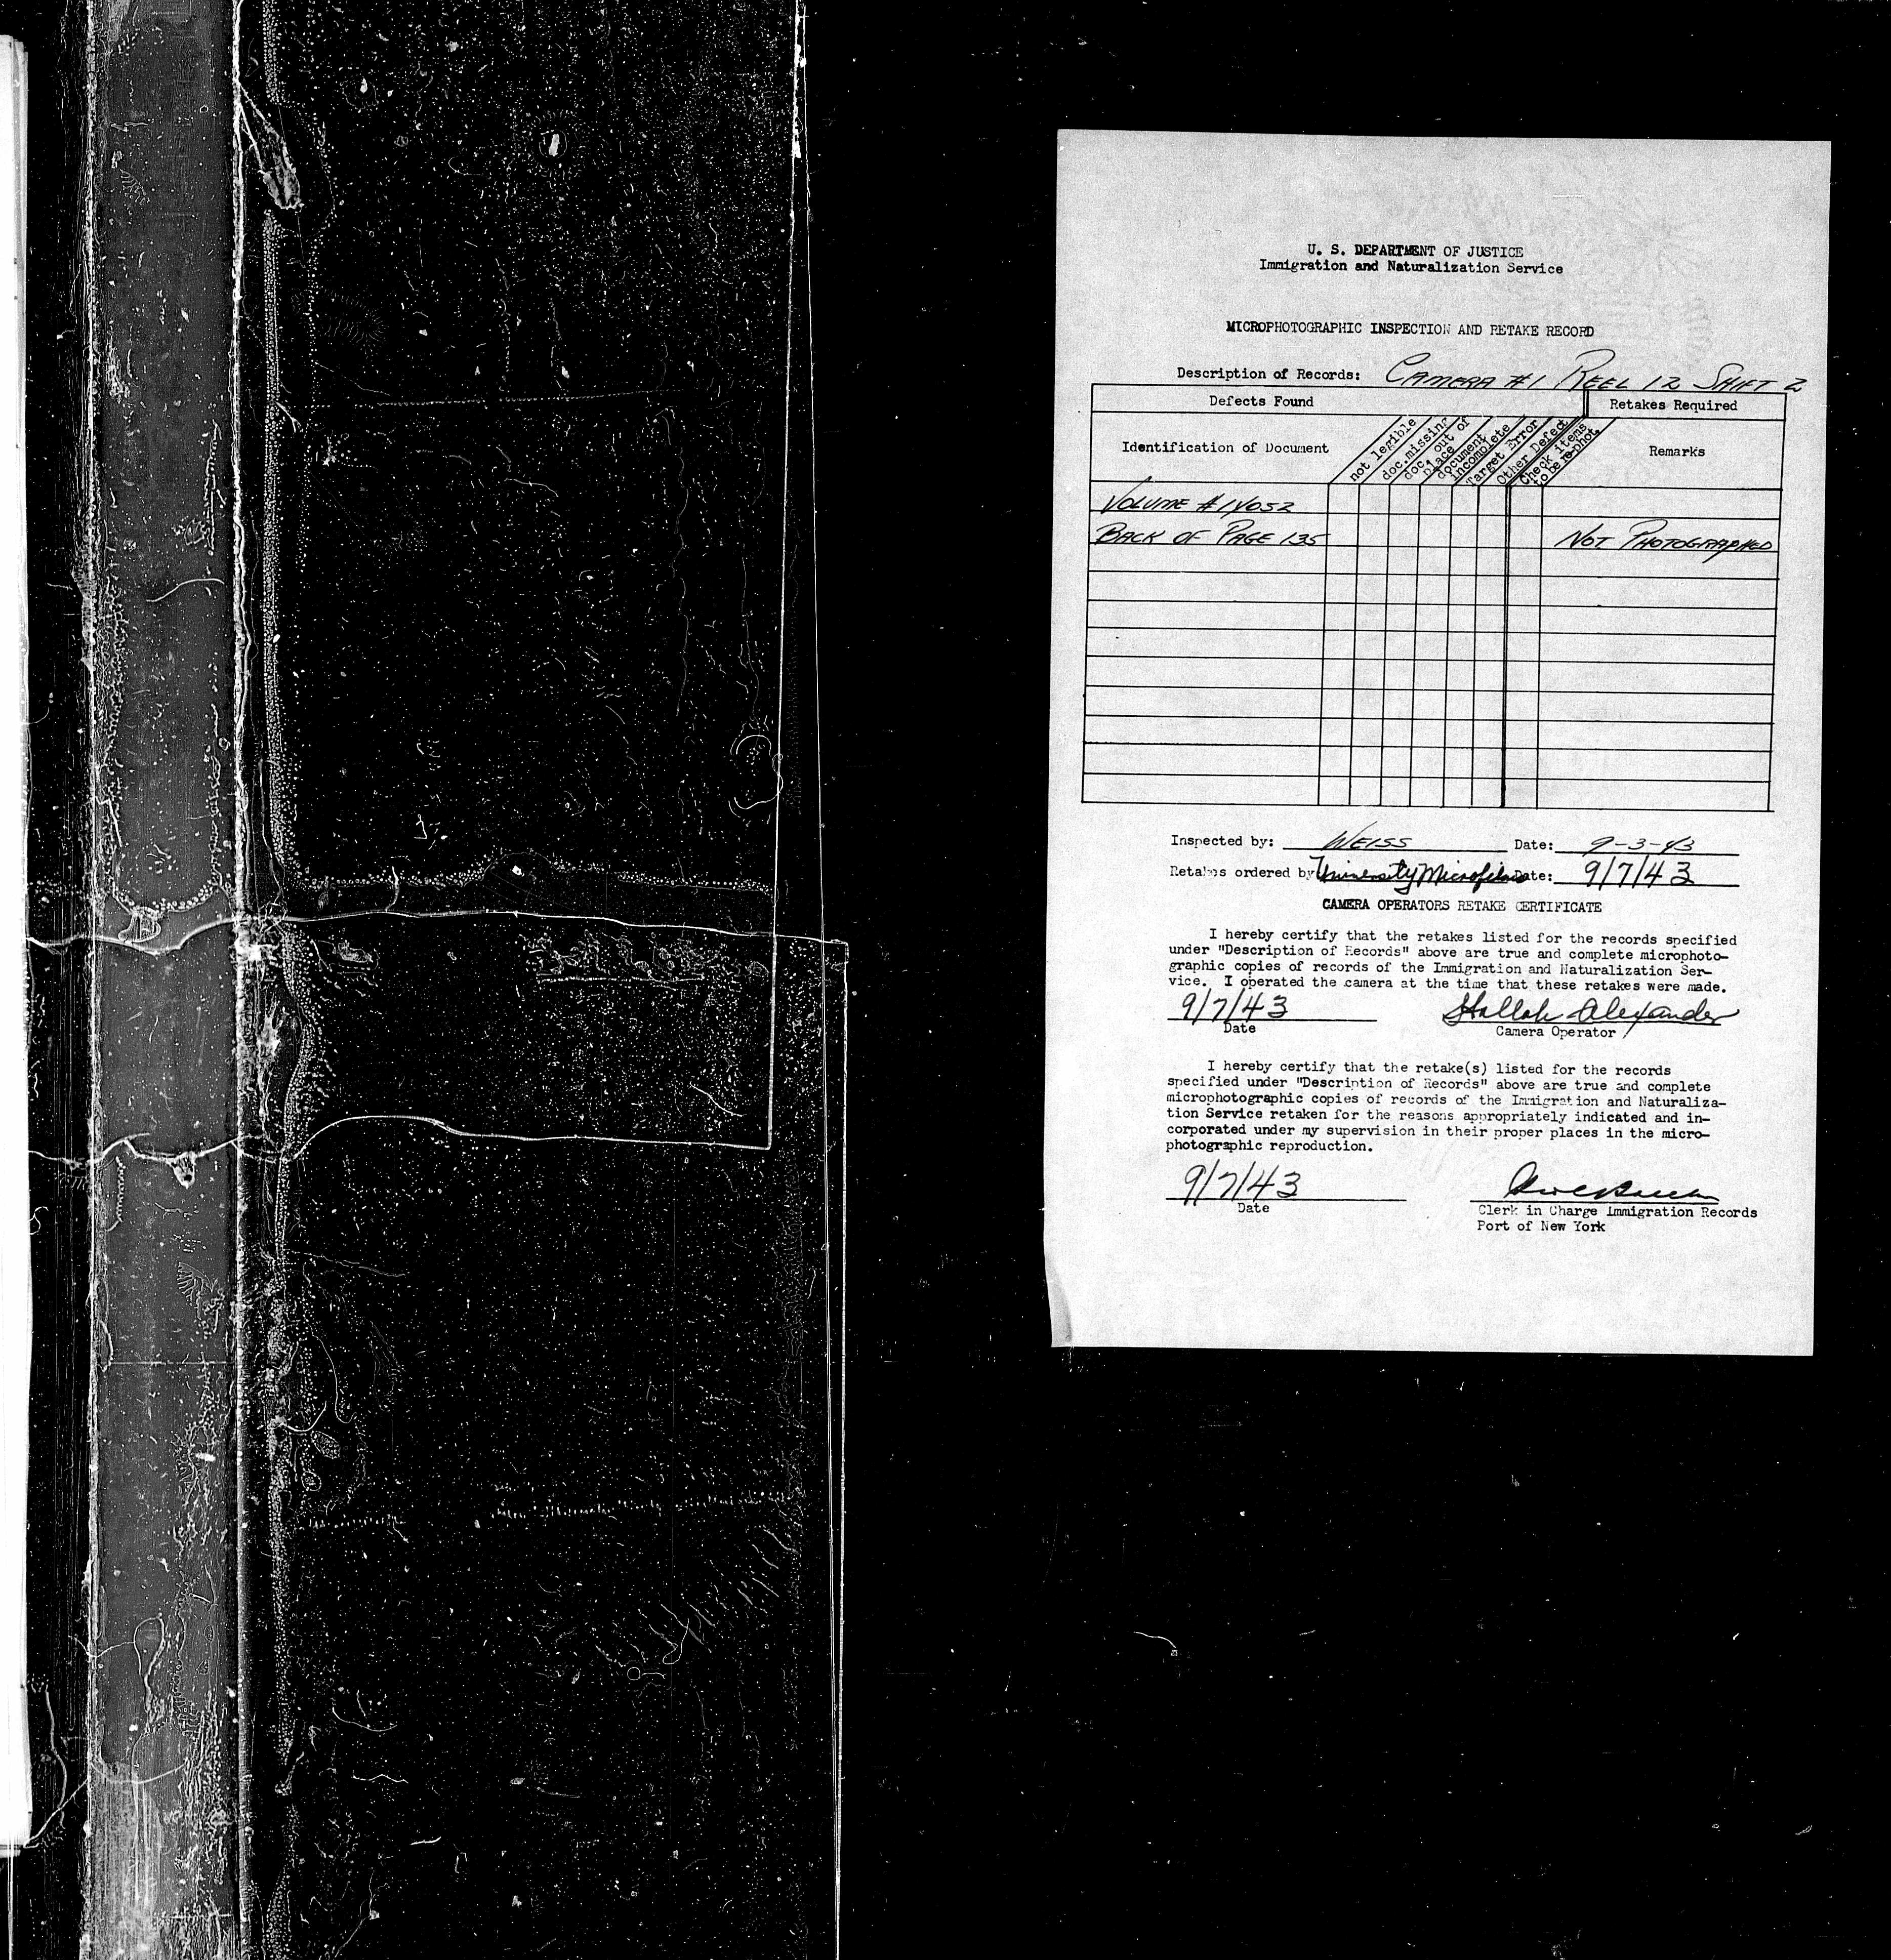 U. S. DEPARTMENT OF JUSTICE
Immigration and Naturalization Service
MICROPHOTOGRAPHIC INSPECTION AND RETAKE RECORD
Description of Records: CAMERA #1 REEL 12 SHIFT 2
Defects Found
Retakes Required
Identification of Document
not legible
doc.missing
doc. out of place
document incomplete
Target Error
Other Defect
Check items to be re-phot.
Remarks
VOLUME #14052
BACK OF PAGE 135 NOT PHOTOGRAPHED
Inspected by: WEISS Date: 9-3-43
Retakes ordered by University Microfilms Date: 9/7/43
CAMERA OPERATORS RETAKE CERTIFICATE
I hereby certify that the retakes listed for the records specified
under "Description of Records" above are true and complete microphoto-
graphic copies of records of the Immigration and Naturalization Ser-
vice. I operated the camera at the time that these retakes were made.
9/7/43 Alexander
Date Camera Operator
I hereby certify that the retake(s) listed for the records
specified under "Description of Records" above are true and complete
microphotographic copies of records of the Immigration and Naturaliza-
tion Service retaken for the reasons appropriately indicated and in-
corporated under my supervision in their proper places in the micro-
photographic reproduction.
9/7/43
Date
Clerk in Charge Immigration Records
Port of New York